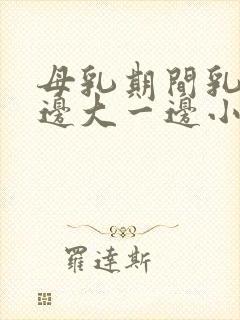 母乳期間乳
邊大一邊小
羅達斯